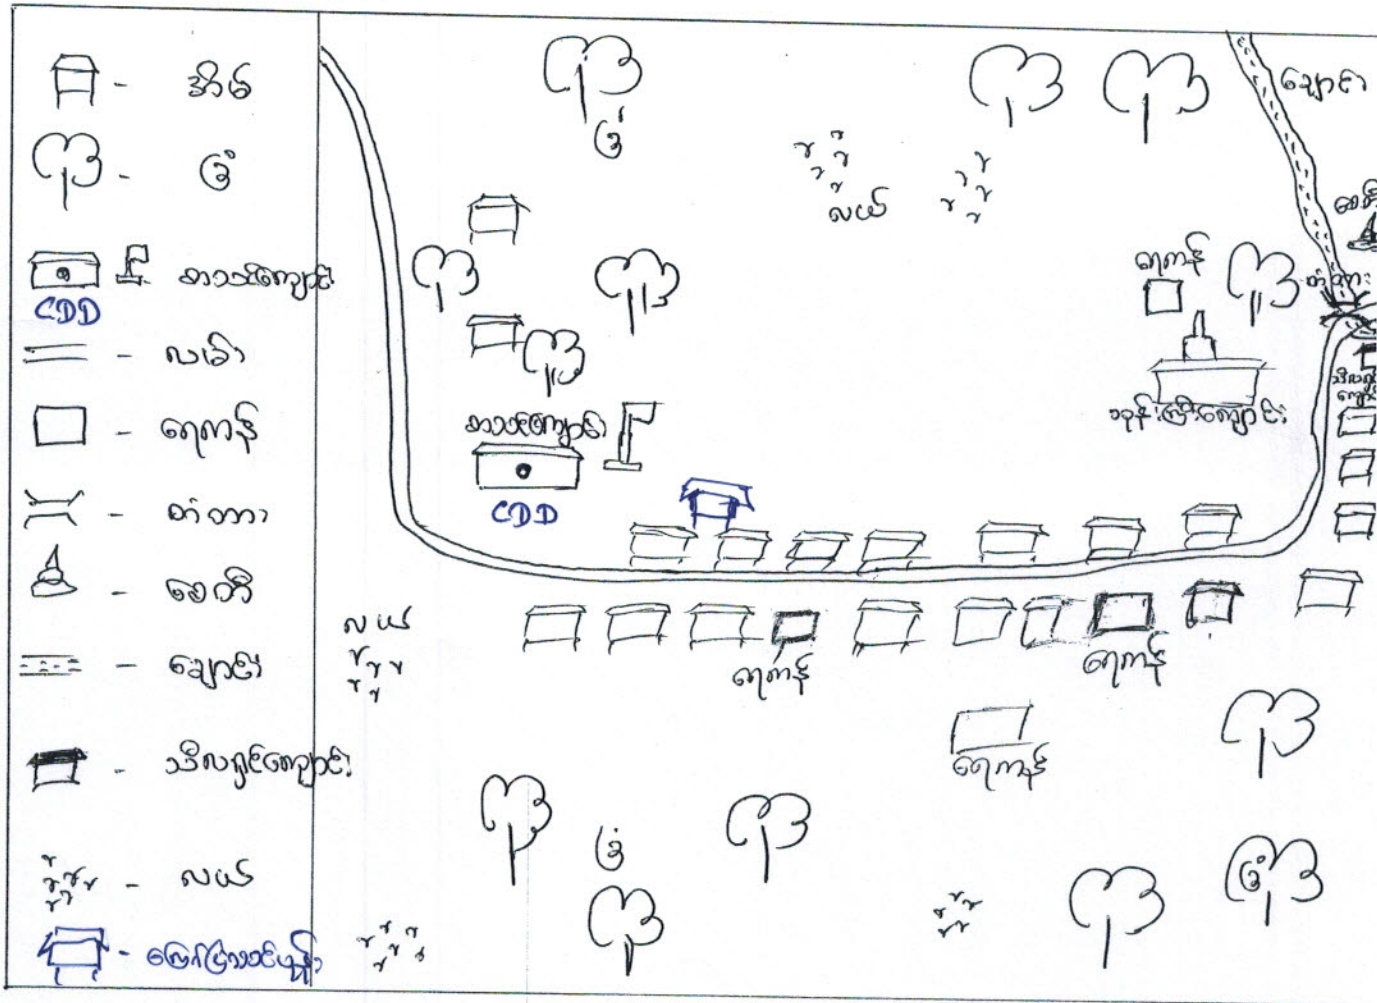 အိမ်
ခြံ
စာသင်ကျောင်း
CDD
လမ်း
ရေကန်
တံတား
စေတီ
ချောင်း
သီလရှင်ကျောင်း
လယ်
ခြံ
လယ်
ချောင်း
စေတီ
ရေကန်
တံတား
ဘုန်းကြီးကျောင်း
စာသင်ကျောင်း
CDD
လယ်
ရေကန်
ရေကန်
ရေကန်
ခြံ
ခြံ